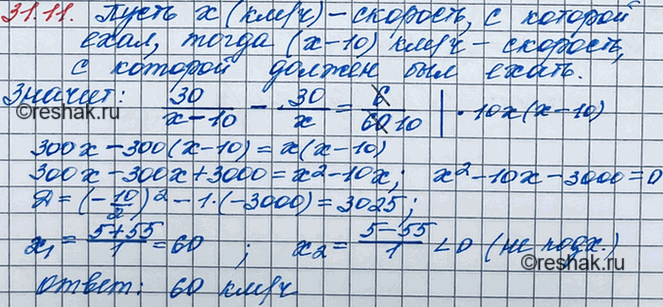 31.11. Пусть x (км/ч) – скорость, с которой
ехал, тогда (x-10) км/ч – скорость,
с которой должен был ехать.
Значит: 30/(x-10) - 30/x = 6/60 10 | · 10x(x-10)
©reshak.ru
300x - 300(x-10) = x(x-10)
300x - 300x + 3000 = x² - 10x; x² - 10x - 3000 = 0
Д = (-10/2)² - 1·(-3000) = 3025;
x₁ = (5+55)/1 = 60 ; x₂ = (5-55)/1 < 0 (не подх.)
Ответ: 60 км/ч
©reshak.ru